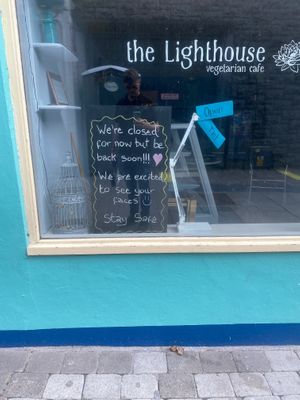 the Lighthouse
vegetarian cafe
We're closed
for now but be
back soon!!!
We are excited
to see your
faces
Stay Safe